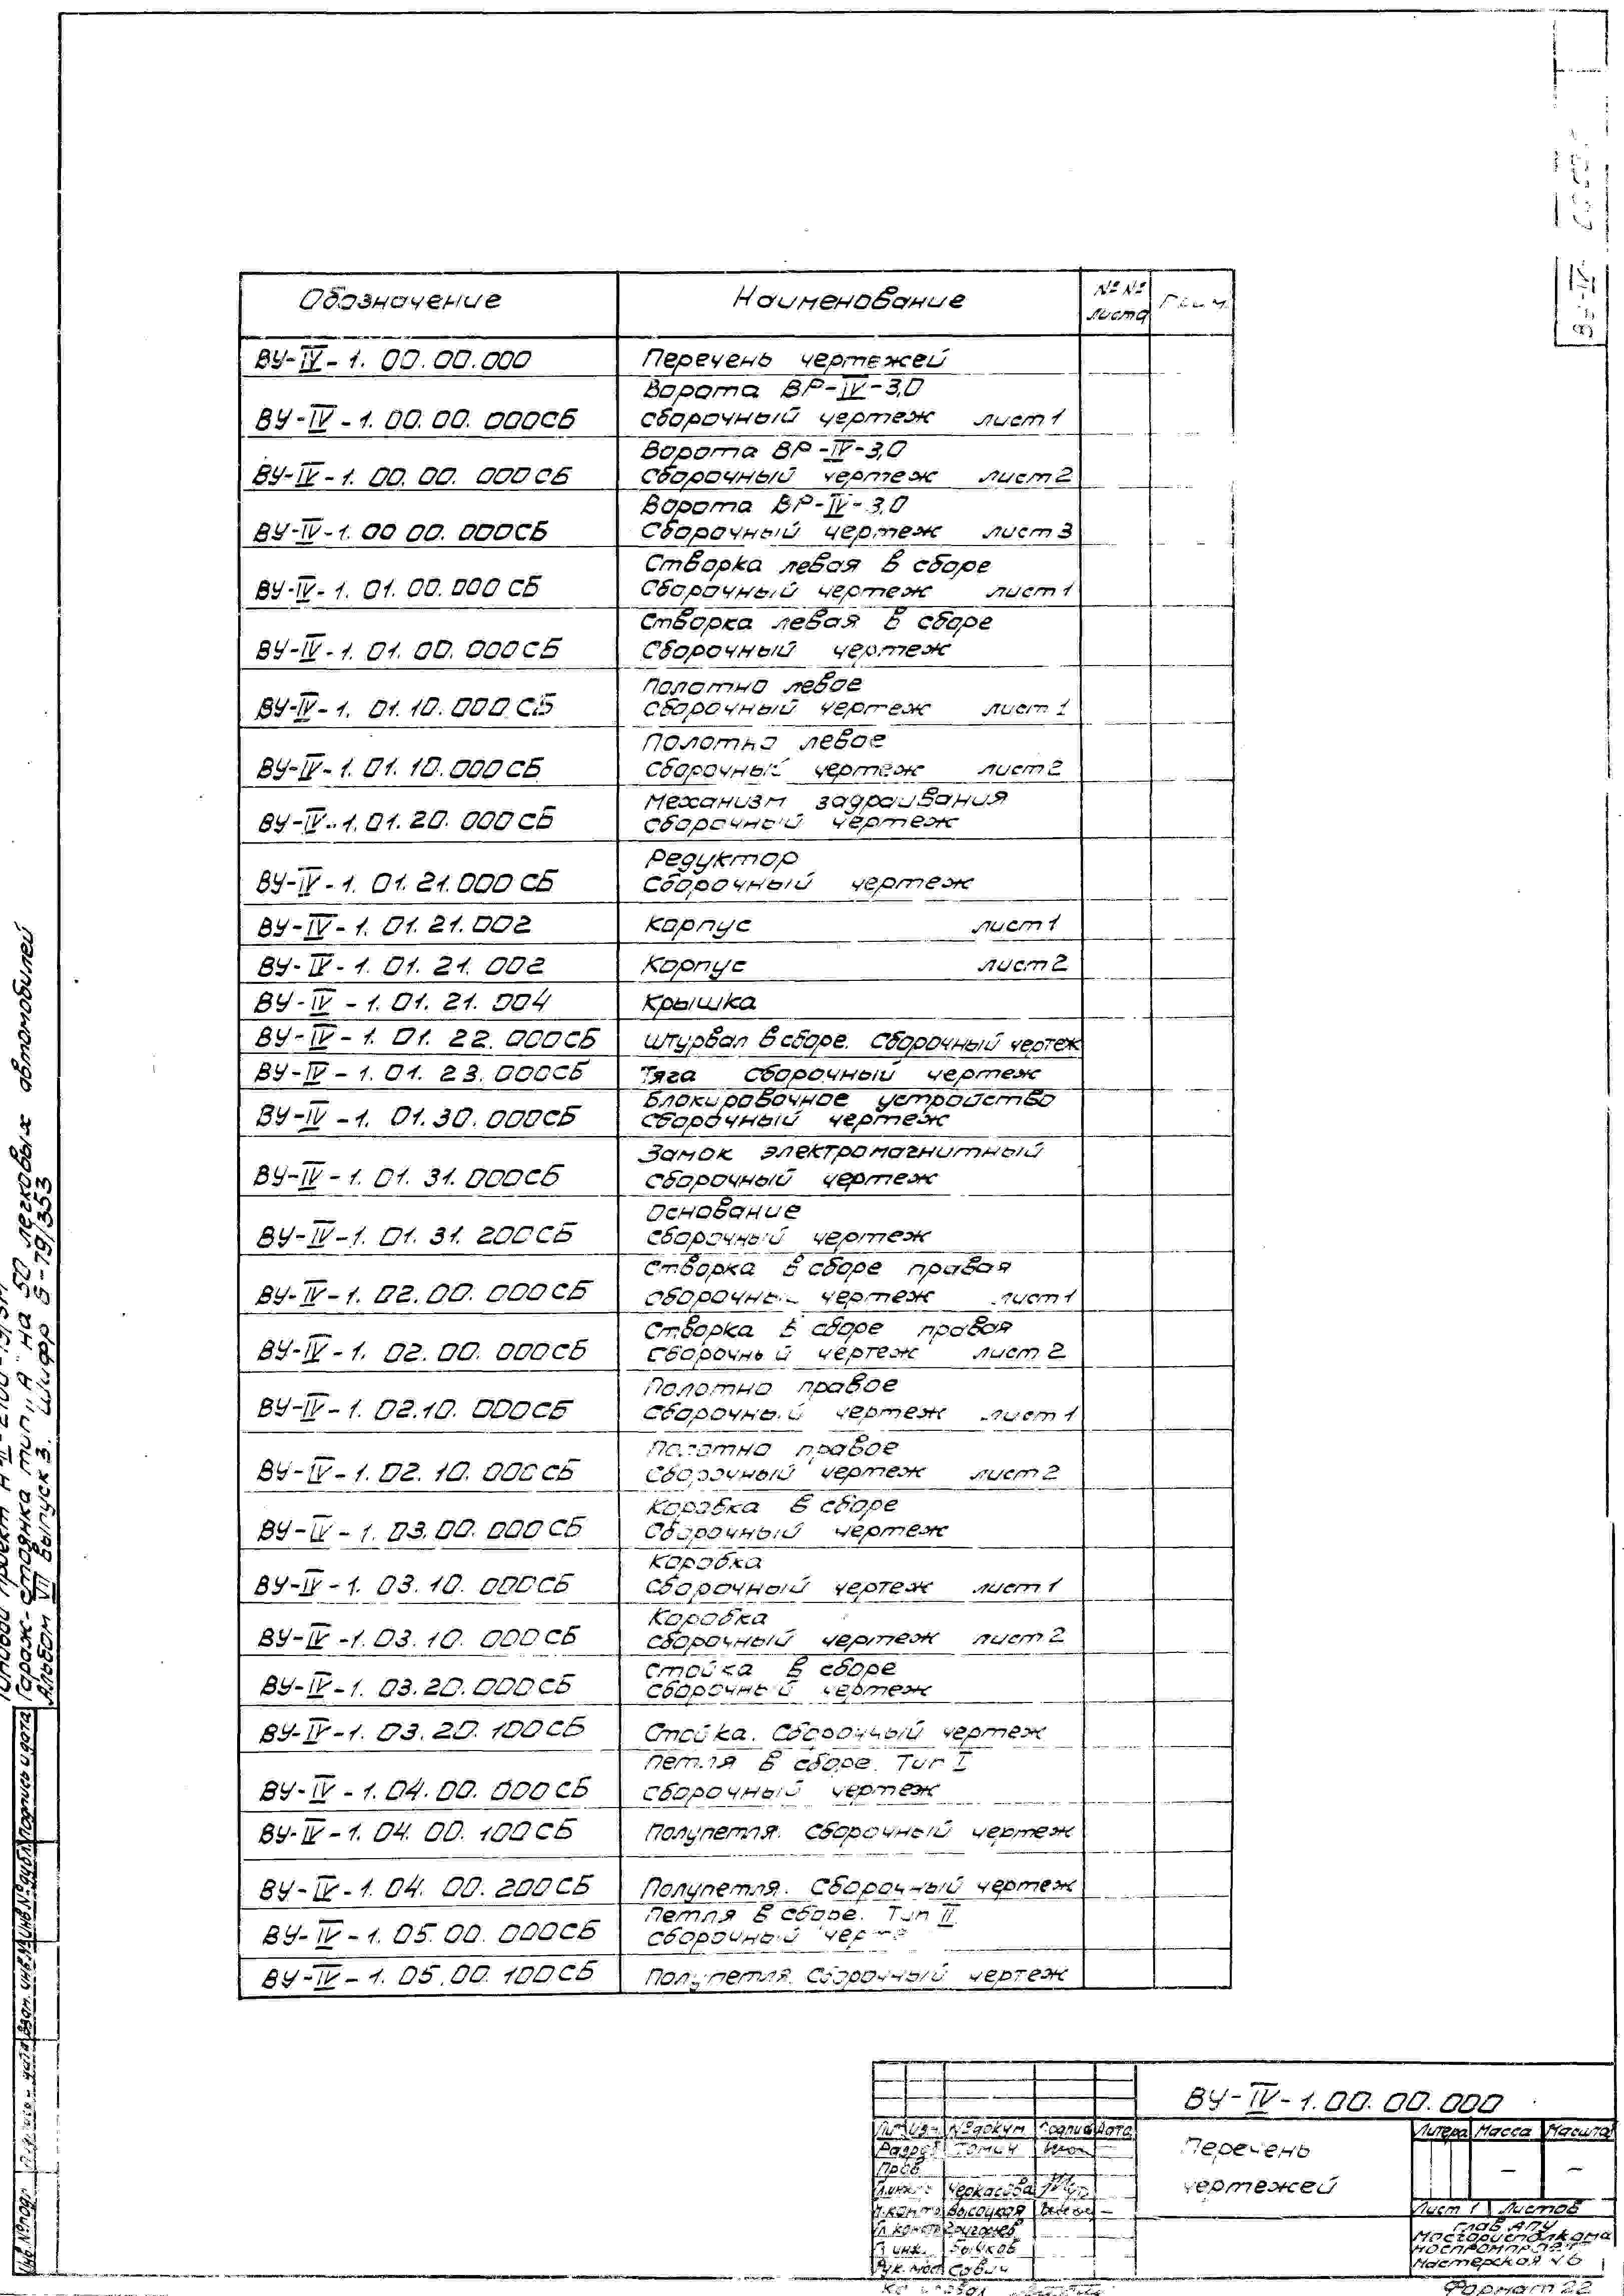 Обозначение Наименование №№ листа
ВУ-IV-1.00.00.000 Перечень чертежей
Ворота ВР-IV-3,0
ВУ-IV-1.00.00.000СБ сборочный чертеж лист 1
Ворота ВР-IV-3,0
ВУ-IV-1.00.00.000СБ сборочный чертеж лист 2
Ворота ВР-IV-3,0
ВУ-IV-1.00 00.000СБ Сборочный чертеж лист 3
Створка левая в сборе
ВУ-IV-1.01.00.000СБ Сборочный чертеж лист 1
Створка левая в сборе
ВУ-IV-1.01.00.000СБ Сборочный чертеж
Полотно левое
ВУ-IV-1.01.10.000СБ сборочный чертеж лист 1
Полотно левое
ВУ-IV-1.01.10.000СБ сборочный чертеж лист 2
Механизм задраивания
ВУ-IV-1.01.20.000СБ сборочный чертеж
Редуктор
ВУ-IV-1.01.21.000СБ Сборочный чертеж
ВУ-IV-1.01.21.002 Корпус лист 1
ВУ-IV-1.01.21.002 Корпус лист 2
ВУ-IV-1.01.21.004 Крышка
ВУ-IV-1.01.22.000СБ Штурвал в сборе. Сборочный чертеж
ВУ-IV-1.01.23.000СБ Тяга сборочный чертеж
Блокировочное устройство
ВУ-IV-1.01.30.000СБ сборочный чертеж
Замок электромагнитный
ВУ-IV-1.01.31.000СБ сборочный чертеж
Основание
ВУ-IV-1.01.31.200СБ сборочный чертеж
Створка в сборе правая
ВУ-IV-1.02.00.000СБ сборочный чертеж лист 1
Створка в сборе правая
ВУ-IV-1.02.00.000СБ сборочный чертеж лист 2
Полотно правое
ВУ-IV-1.02.10.000СБ сборочный чертеж лист 1
Полотно правое
ВУ-IV-1.02.10.000СБ сборочный чертеж лист 2
Коробка в сборе
ВУ-IV-1.03.00.000СБ Сборочный чертеж
Коробка
ВУ-IV-1.03.10.000СБ сборочный чертеж лист 1
Коробка
ВУ-IV-1.03.10.000СБ сборочный чертеж лист 2
Стойка в сборе
ВУ-IV-1.03.20.000СБ сборочный чертеж
ВУ-IV-1.03.20.100СБ Стойка. Сборочный чертеж
Петля в сборе. Тип I
ВУ-IV-1.04.00.000СБ сборочный чертеж
ВУ-IV-1.04.00.100СБ Полупетля. Сборочный чертеж
ВУ-IV-1.04.00.200СБ Полупетля. Сборочный чертеж
Петля в сборе. Тип II
ВУ-IV-1.05.00.000СБ сборочный
ВУ-IV-1.05.00.100СБ Полупетля. Сборочный чертеж
Гараж-стоянка тип „А" на 50 легковых автомобилей
Альбом VII Выпуск 3. Шифр
Подпись и дата
Инв.№дубл.
Взам. инв.№
Инв.№подл
ВУ-IV-1.00.00.000
Изм №докум Подпись Дата
Литера Масса Масштаб
Разраб Томич
Перечень
чертежей
Пров
Черкасова
Н.контр Высоцкая
Лист 1 Листов
Бычков
Рук.мас Савич
Глав АПУ
Мосгорисполкома
Моспромпроект
Мастерская №6
Формат 22